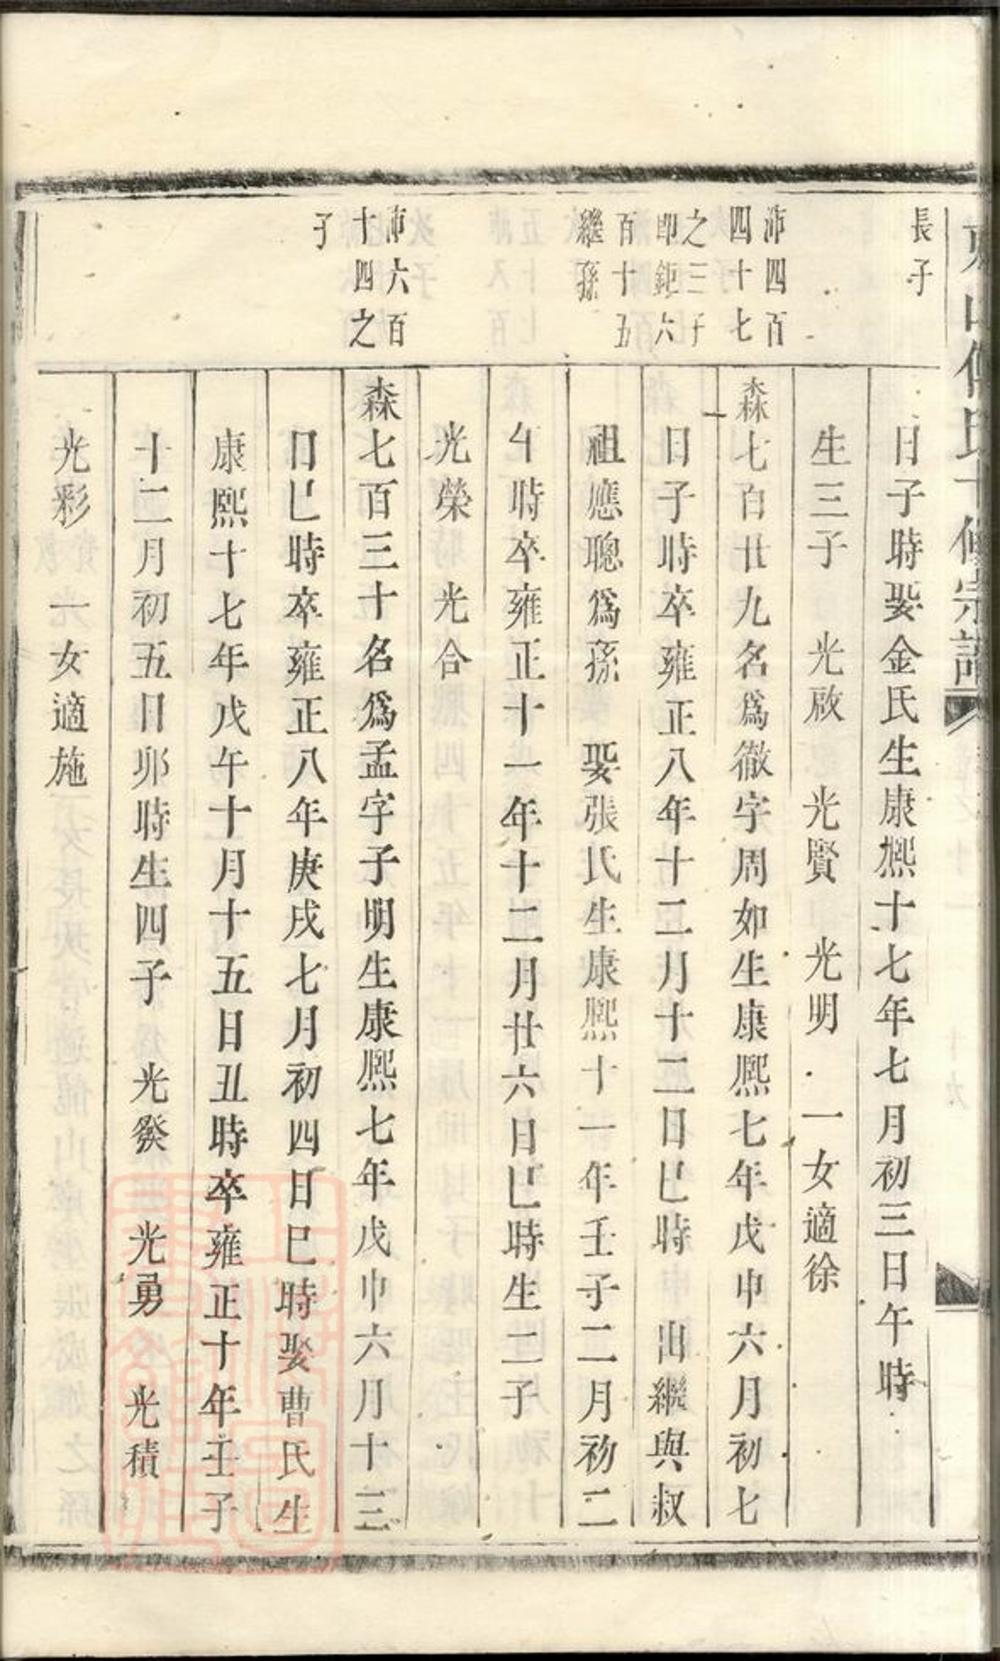 長子
日子時娶金氏生康熈十七年七月初三日午時
生三子 光啟 光賢 光明 一女適徐
沛四百
四十七
之三子
即鉅六
百十五
繼孫
森七百廿九名爲徹字周如生康熈七年戊申六月初七
日子時卒雍正八年十二月十二日巳時 出繼與叔
祖應聰爲孫 娶張氏生康熈十一年壬子二月初二
午時卒雍正十一年十二月廿六日巳時生二子
光榮 光合
沛六百
十四之
子
森七百三十名爲孟字子明生康熈七年戊申六月十三
日巳時卒雍正八年庚戌七月初四日巳時娶曹氏生
康熈十七年戊午十月十五日丑時卒雍正十年壬子
十二月初五日卯時生四子 光發 光勇 光積
光彩 一女適施